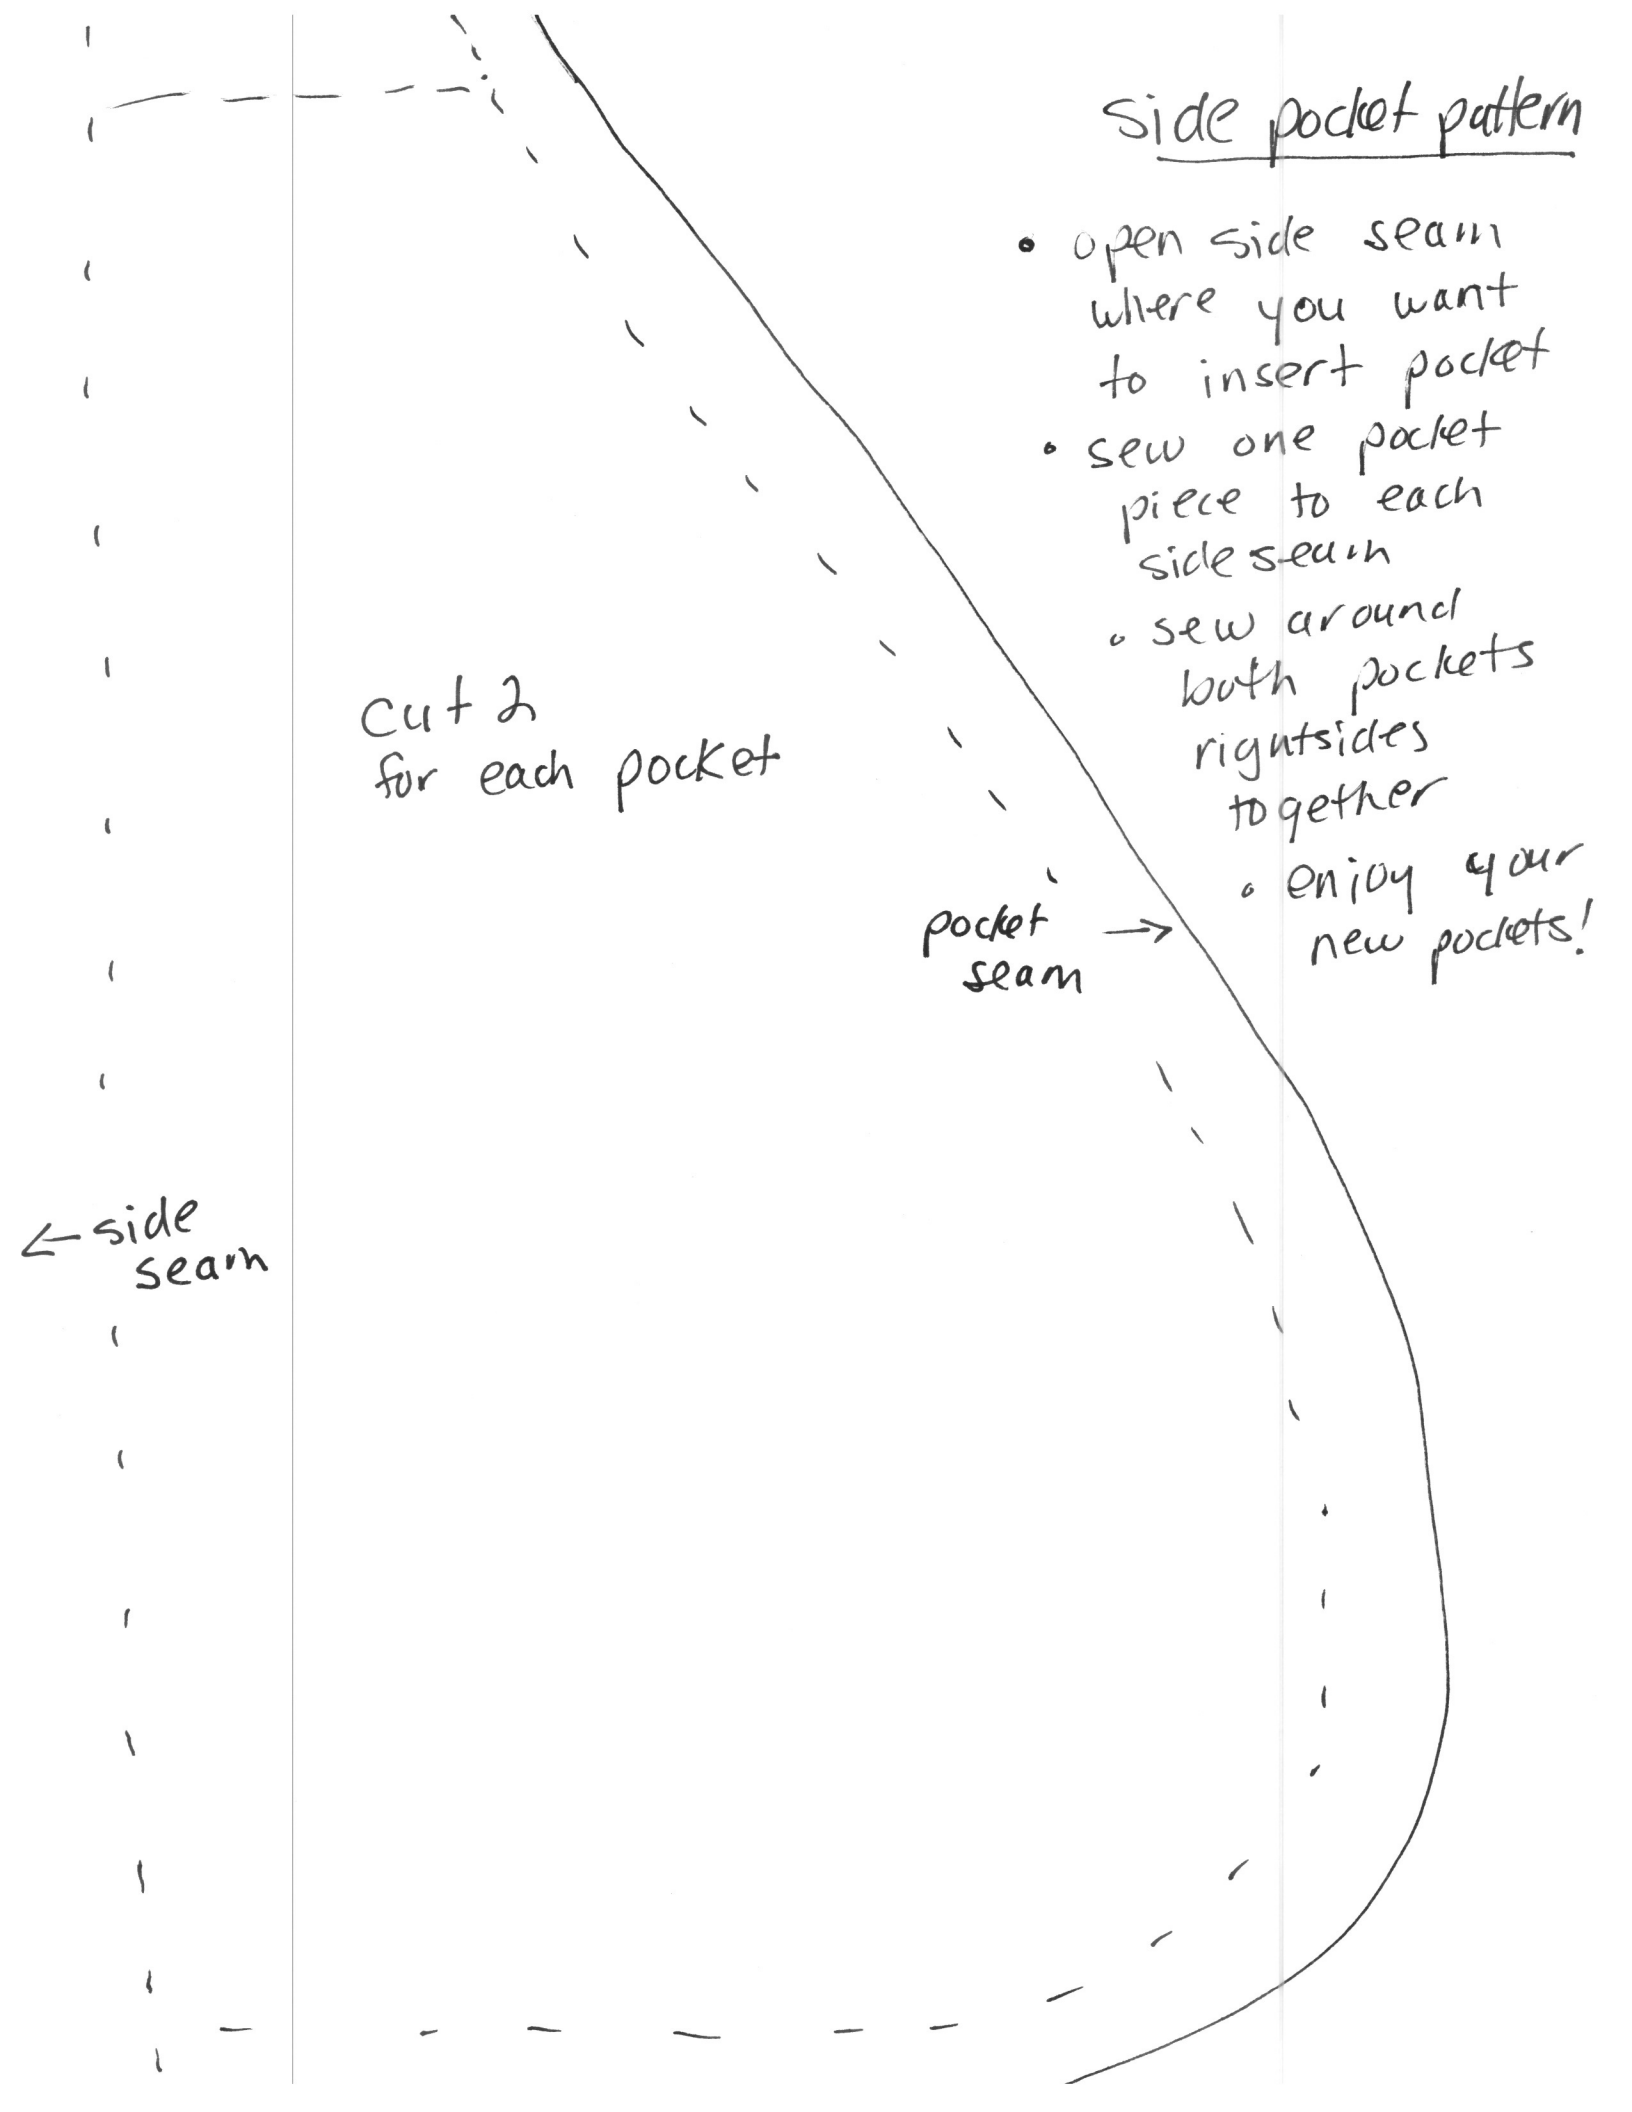 side pocket pattern
• open side seam
where you want
to insert pocket
• sew one pocket
piece to each
side seam
• sew around
both pockets
rightsides
together
• enjoy your
new pockets!
cut 2
for each pocket
pocket →
seam
← side
seam